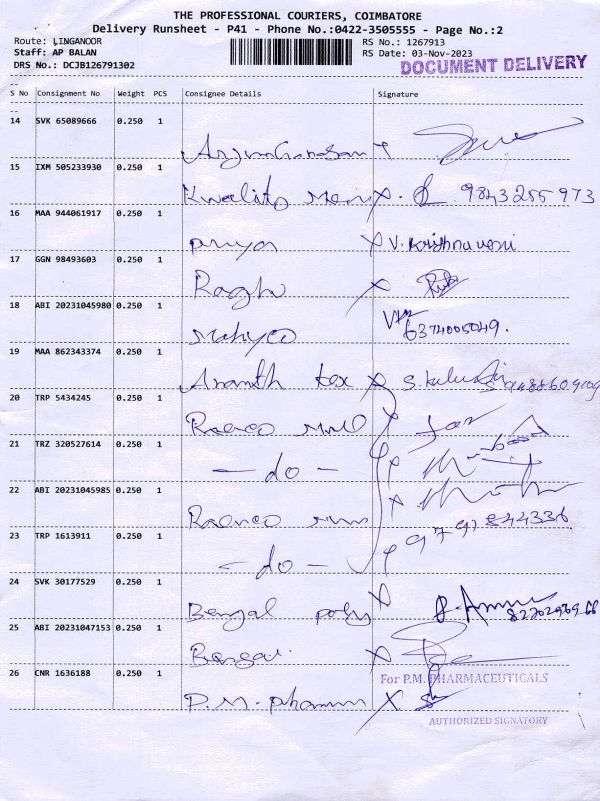 THE PROFESSIONAL COURIERS, COIMBATORE
Delivery Runsheet - P41 - Phone No.:0422-3505555 - Page No.:2
Route: LINGANOOR
Staff: AP BALAN
DRS No.: DCJB126791302
RS No.: 1267913
RS Date: 03-Nov-2023
DOCUMENT DELIVERY
S No Consignment No Weight PCS Consignee Details Signature
14 SVK 65089666 0.250 1
15 IXM 505233930 0.250 1
Kwality x 9843255973
16 MAA 944061917 0.250 1
Priya x V. Krishnaveni
17 GGN 98493603 0.250 1
Raghu x
18 ABI 20231045980 0.250 1
Mahyco 6374005049.
19 MAA 862343374 0.250 1
Ananth tex x
20 TRP 5434245 0.250 1
x
21 TRZ 320527614 0.250 1
- do - x
22 ABI 20231045985 0.250 1
x
23 TRP 1613911 0.250 1
- do - x 9791844336
24 SVK 30177529 0.250 1
Bengal poly x
25 ABI 20231047153 0.250 1
x
26 CNR 1636188 0.250 1
For P.M. PHARMACEUTICALS
P.M. x
AUTHORIZED SIGNATORY